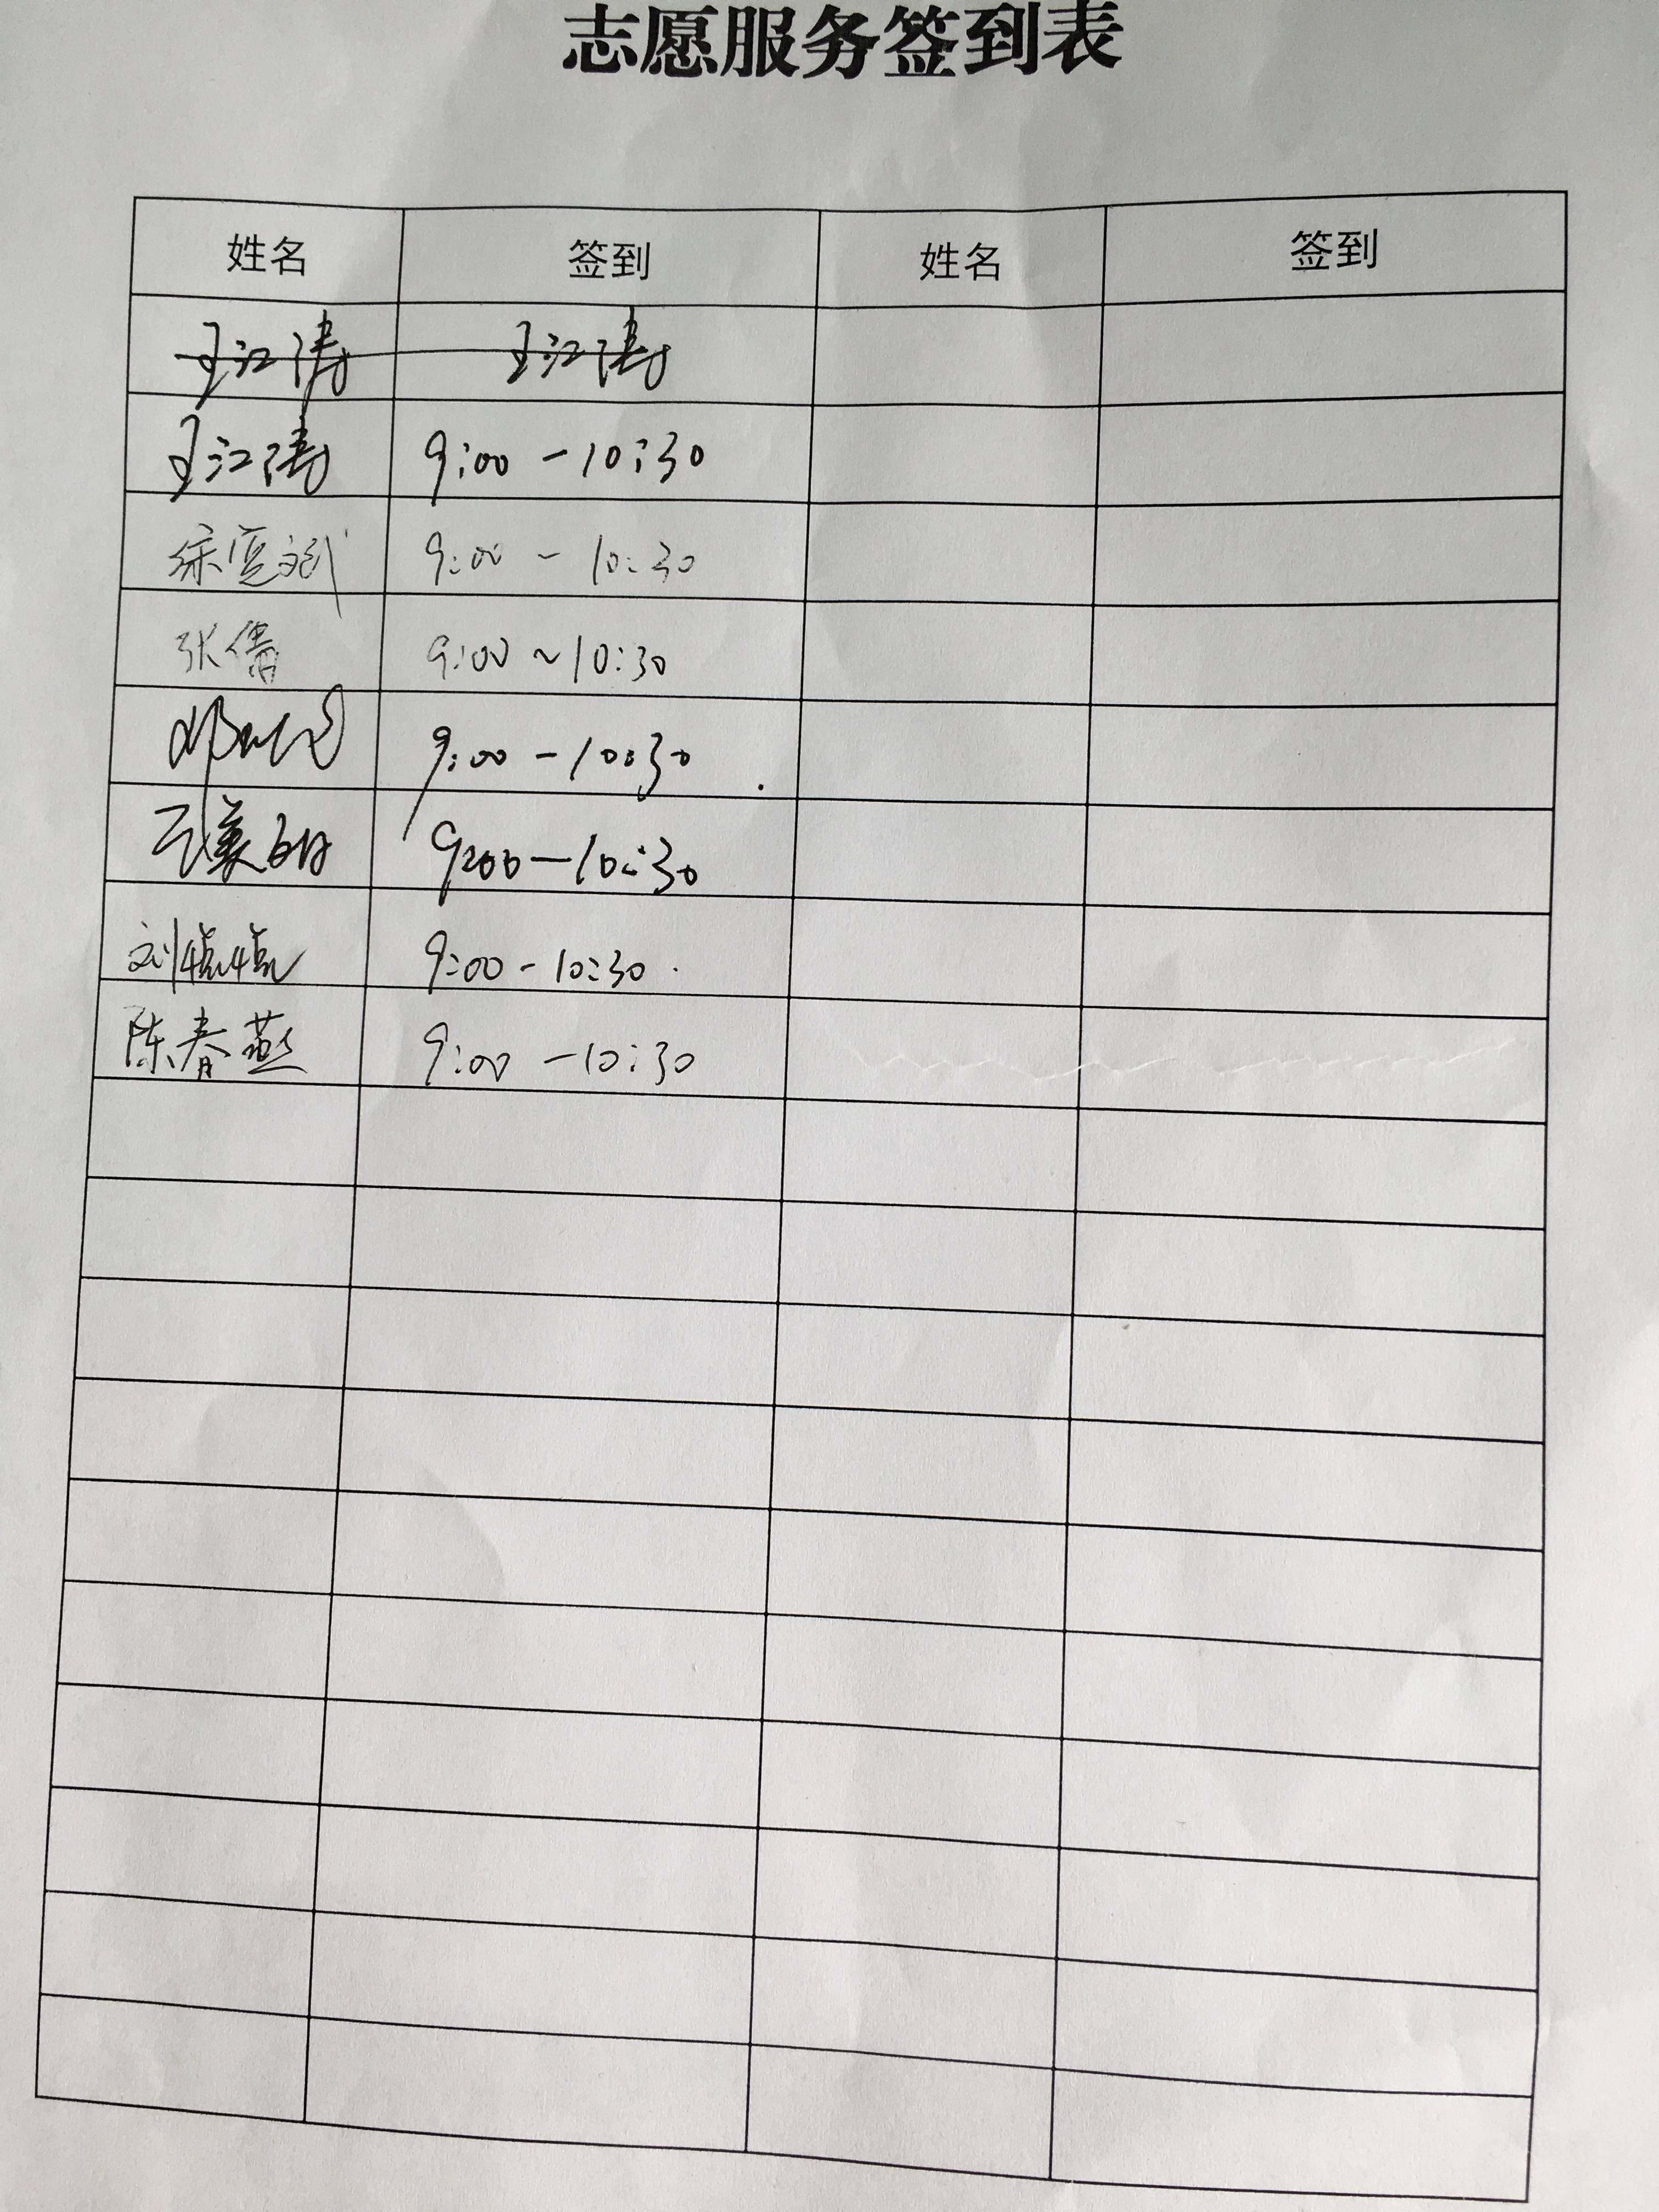 志愿服务签到表
姓名 签到 姓名 签到
王江涛 王江涛
王江涛 9:00-10:30
9:00-10:30
张倩 9:00~10:30
9:00-10:30
9:00-10:30
刘慎慎 9:00-10:30
陈春燕 9:00-10:30